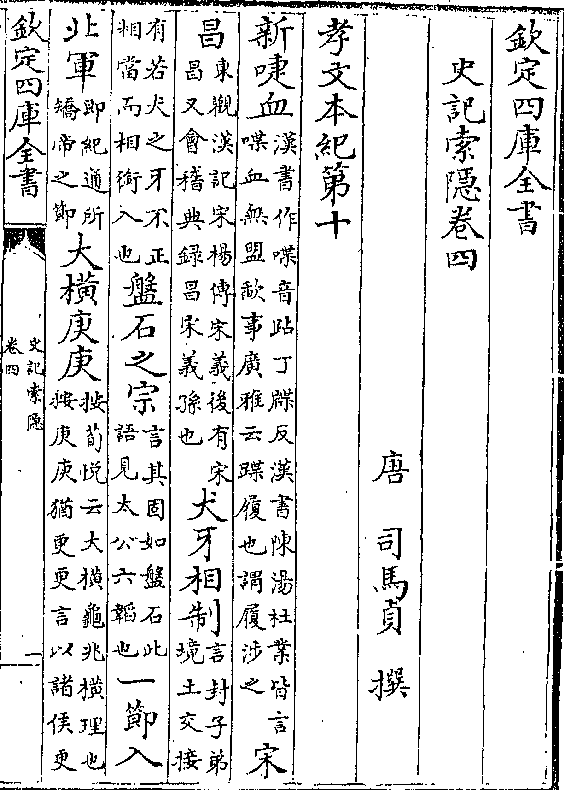 欽定四庫全書
史記索隱卷四
唐 司馬貞 撰
孝文本紀第十
新啑血漢書作喋音跕丁牒反漢書陳湯杜業皆言喋血無盟歃事廣雅云蹀履也謂履涉之宋
昌東觀漢記宋楊傳宋義後有宋昌又會稽典録昌宋義孫也犬牙相制言封子弟境土交接
有若犬之牙不正相當而相銜入也盤石之宗言其固如盤石此語見太公六韜也一節入
北軍即紀通所矯帝之節大橫庚庚按荀悅云大橫龜兆橫理也按庚庚猶更更言以諸侯更
欽定四庫全書
史記索隱
卷四
一